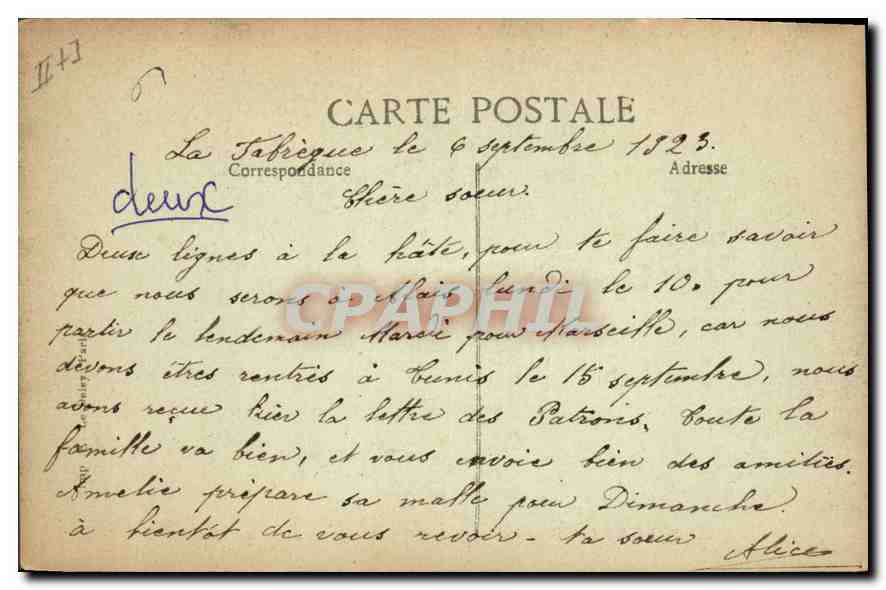 II+I
6
CARTE POSTALE
La Fabrègue le 6 septembre 1923.
Correspondance
Adresse
deux
Chère soeur.
Deux lignes à la hâte, pour te faire savoir
que nous serons à Alais lundi le 10. pour
partir le lendemain Mardi pour Marseille, car nous
devons êtres rentrés à Tunis le 15 septembre, nous
avons reçue hier la lettre des Patrons, Toute la
famille va bien, et vous envoie bien des amitiés.
Amelie prépare sa malle pour Dimanche.
à bientôt de vous revoir - ta soeur
Alice
CPAPHIL